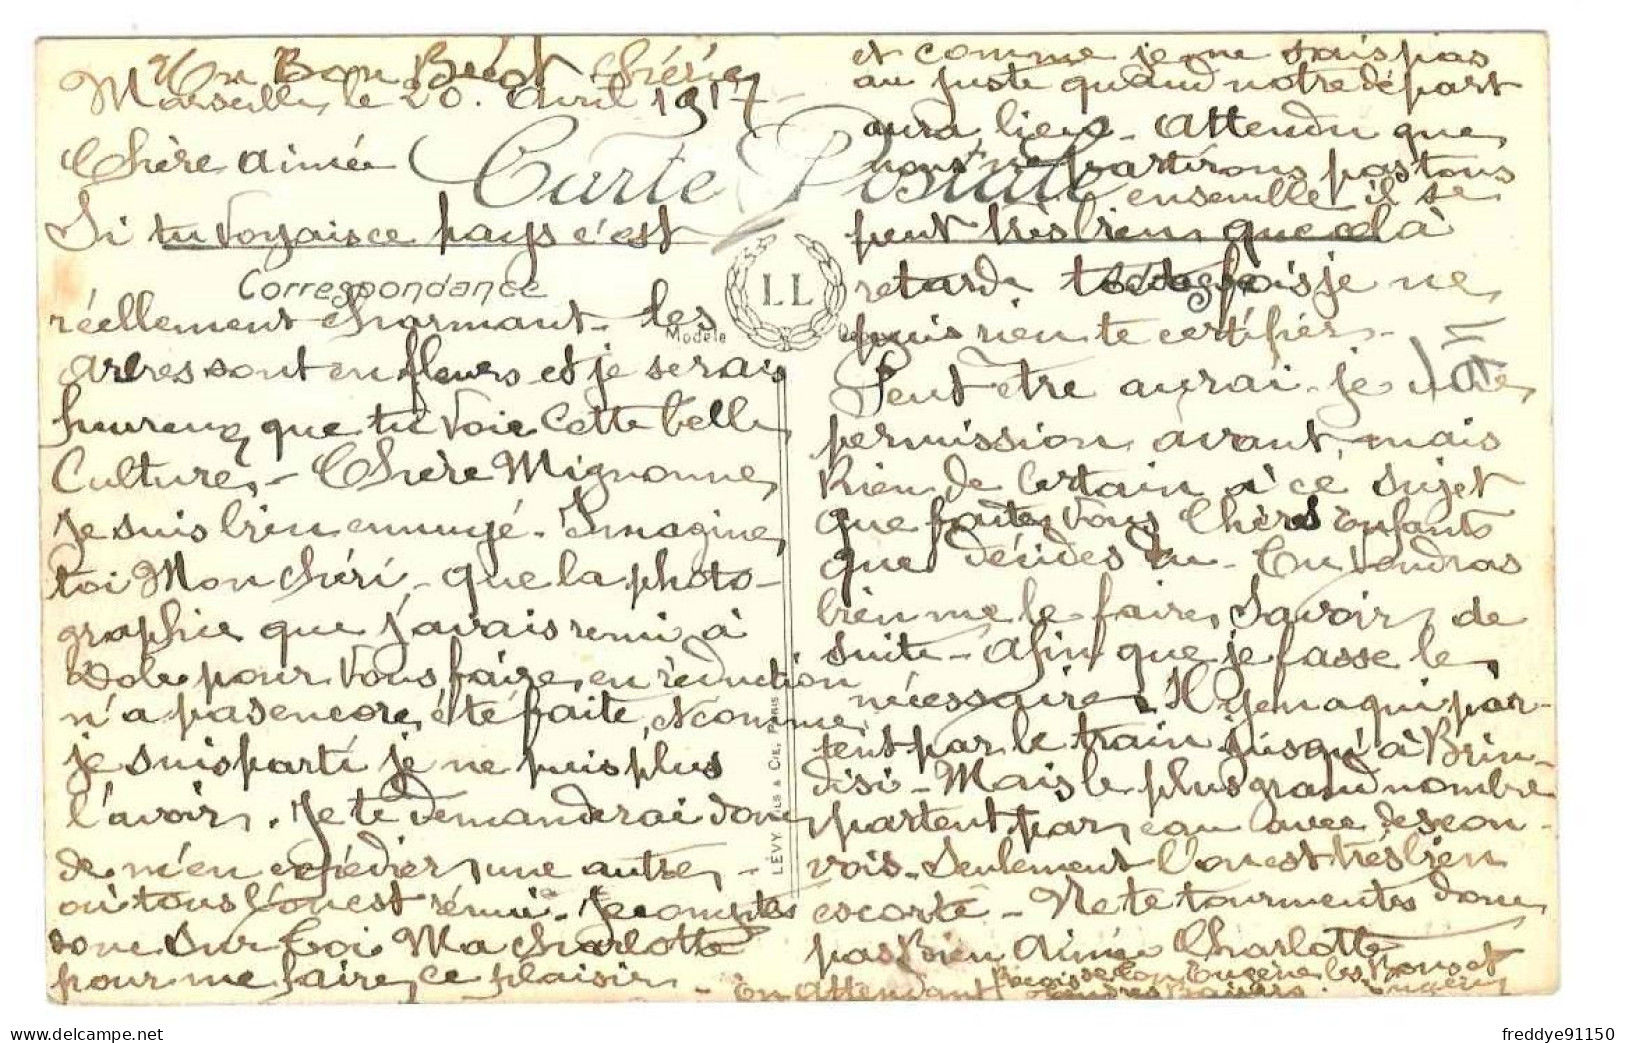 Mon Bon Bécot chérie
Marseille, le 20. Avril 1917 -
Chère aimée
Carte Postale
Si tu voyais ce pays c'est
Correspondance
réellement charmant - les
arbres sont en fleurs et je serais
heureux que tu voie cette belle
Culture, - Chère Mignonne,
je suis bien ennuyé - Imagine
toi Mon chéri - que la photo-
graphie que j'avais remi à
Dole pour vous faire, en réduction
n'a pas encore été faite, et comme
je suis parti je ne puis plus
l'avoir. Je te demanderai donc
de m'en expédier une autre -
où tous l'on est rémui - Je comptes
donc sur toi Ma charlotte
pour me faire, ce plaisir -
LL
Modèle
LÉVY FILS & CIE, PARIS
et comme je ne sais pas
au juste quand notre départ
aura lieu - Attendu que
nous ne partirons pas tous
ensemble il se
peut très bien que celà
retarde toutefois je ne
puis rien te certifier -
Peut être aurai-je une
permission avant, mais
Rien de certain à ce sujet
que faites vous Chères Enfants
que décides tu - Tu voudras
bien me le faire, Savoir, de
suite - Afin que je fasse le
nécessaire. Il y en a qui par-
tent par le train jusqu'à Brin-
disi - Mais le plus grand nombre
partent par eau avec des con-
vois - Seulement l'on est très bien
escorté - Ne te tourmentes donc
pas Bien Aimée Charlotte
En Attendant Reçois de ton Eugène les Bons et
Tendres Baisers. Eugène
freddye91150